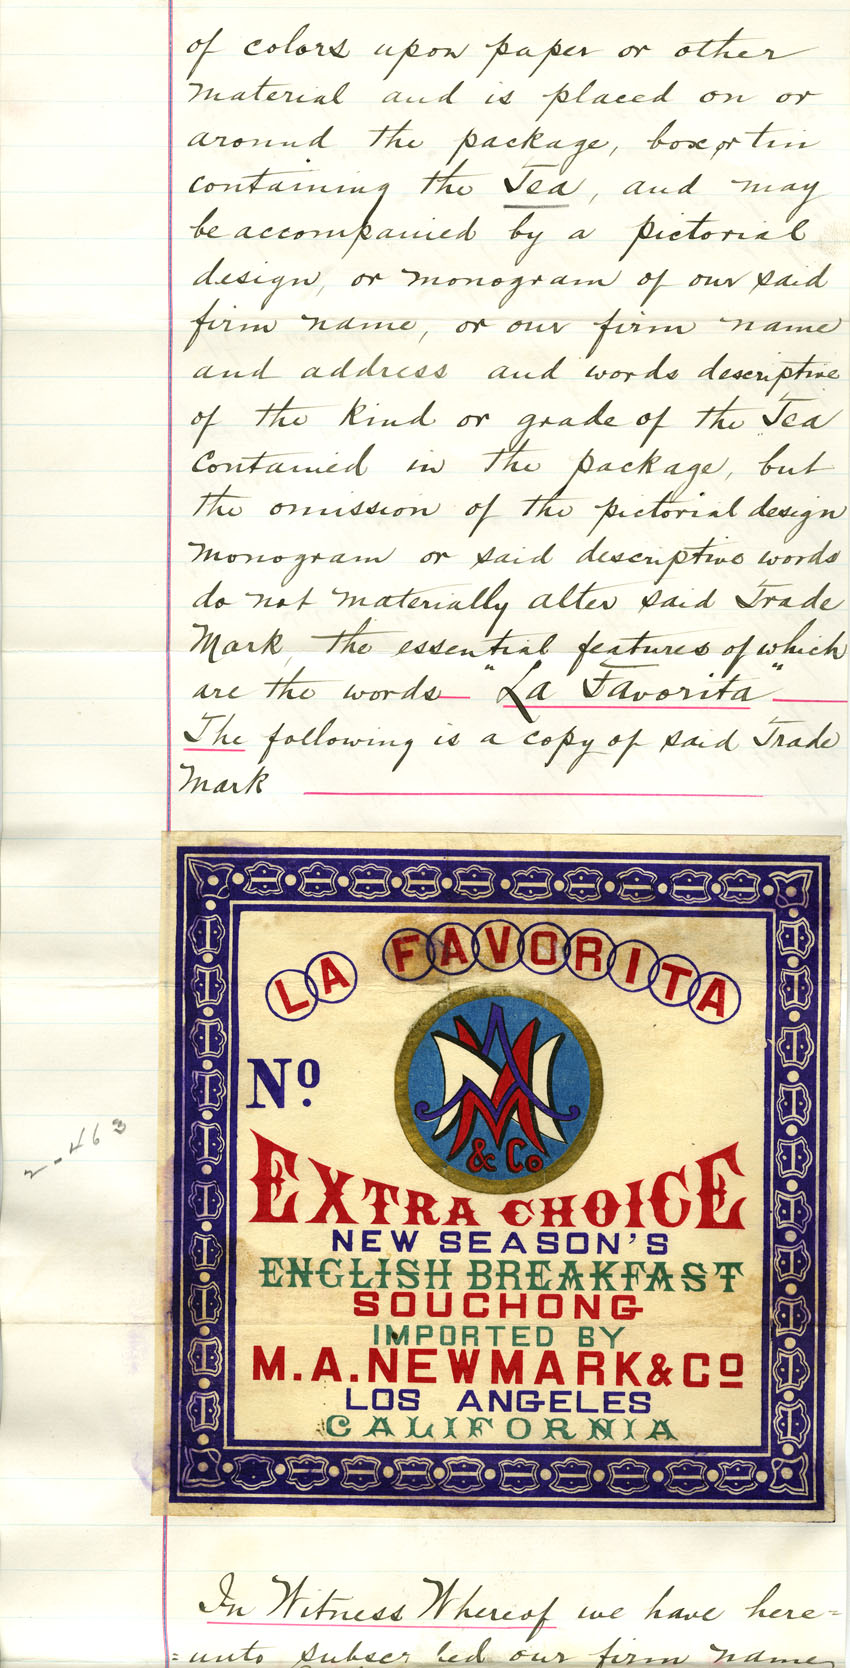 of colors upon paper or other
material and is placed on or
around the package, box or tin
containing the Tea, and may
be accompanied by a pictorial
design, or monogram of our said
firm name, or our firm name
and address and words descriptive
of the kind or grade of the Tea
contained in the package, but
the omission of the pictorial design
monogram or said descriptive words
do not materially alter said Trade
Mark, the essential features of which
are the words "La Favorita"
The following is a copy of said Trade
Mark
LA FAVORITA
No.
MA
& Co
EXTRA CHOICE
NEW SEASON'S
ENGLISH BREAKFAST
SOUCHONG
IMPORTED BY
M.A. NEWMARK & Co
LOS ANGELES
CALIFORNIA
2-463
In Witness Whereof we have here=
=unto subscribed our firm name